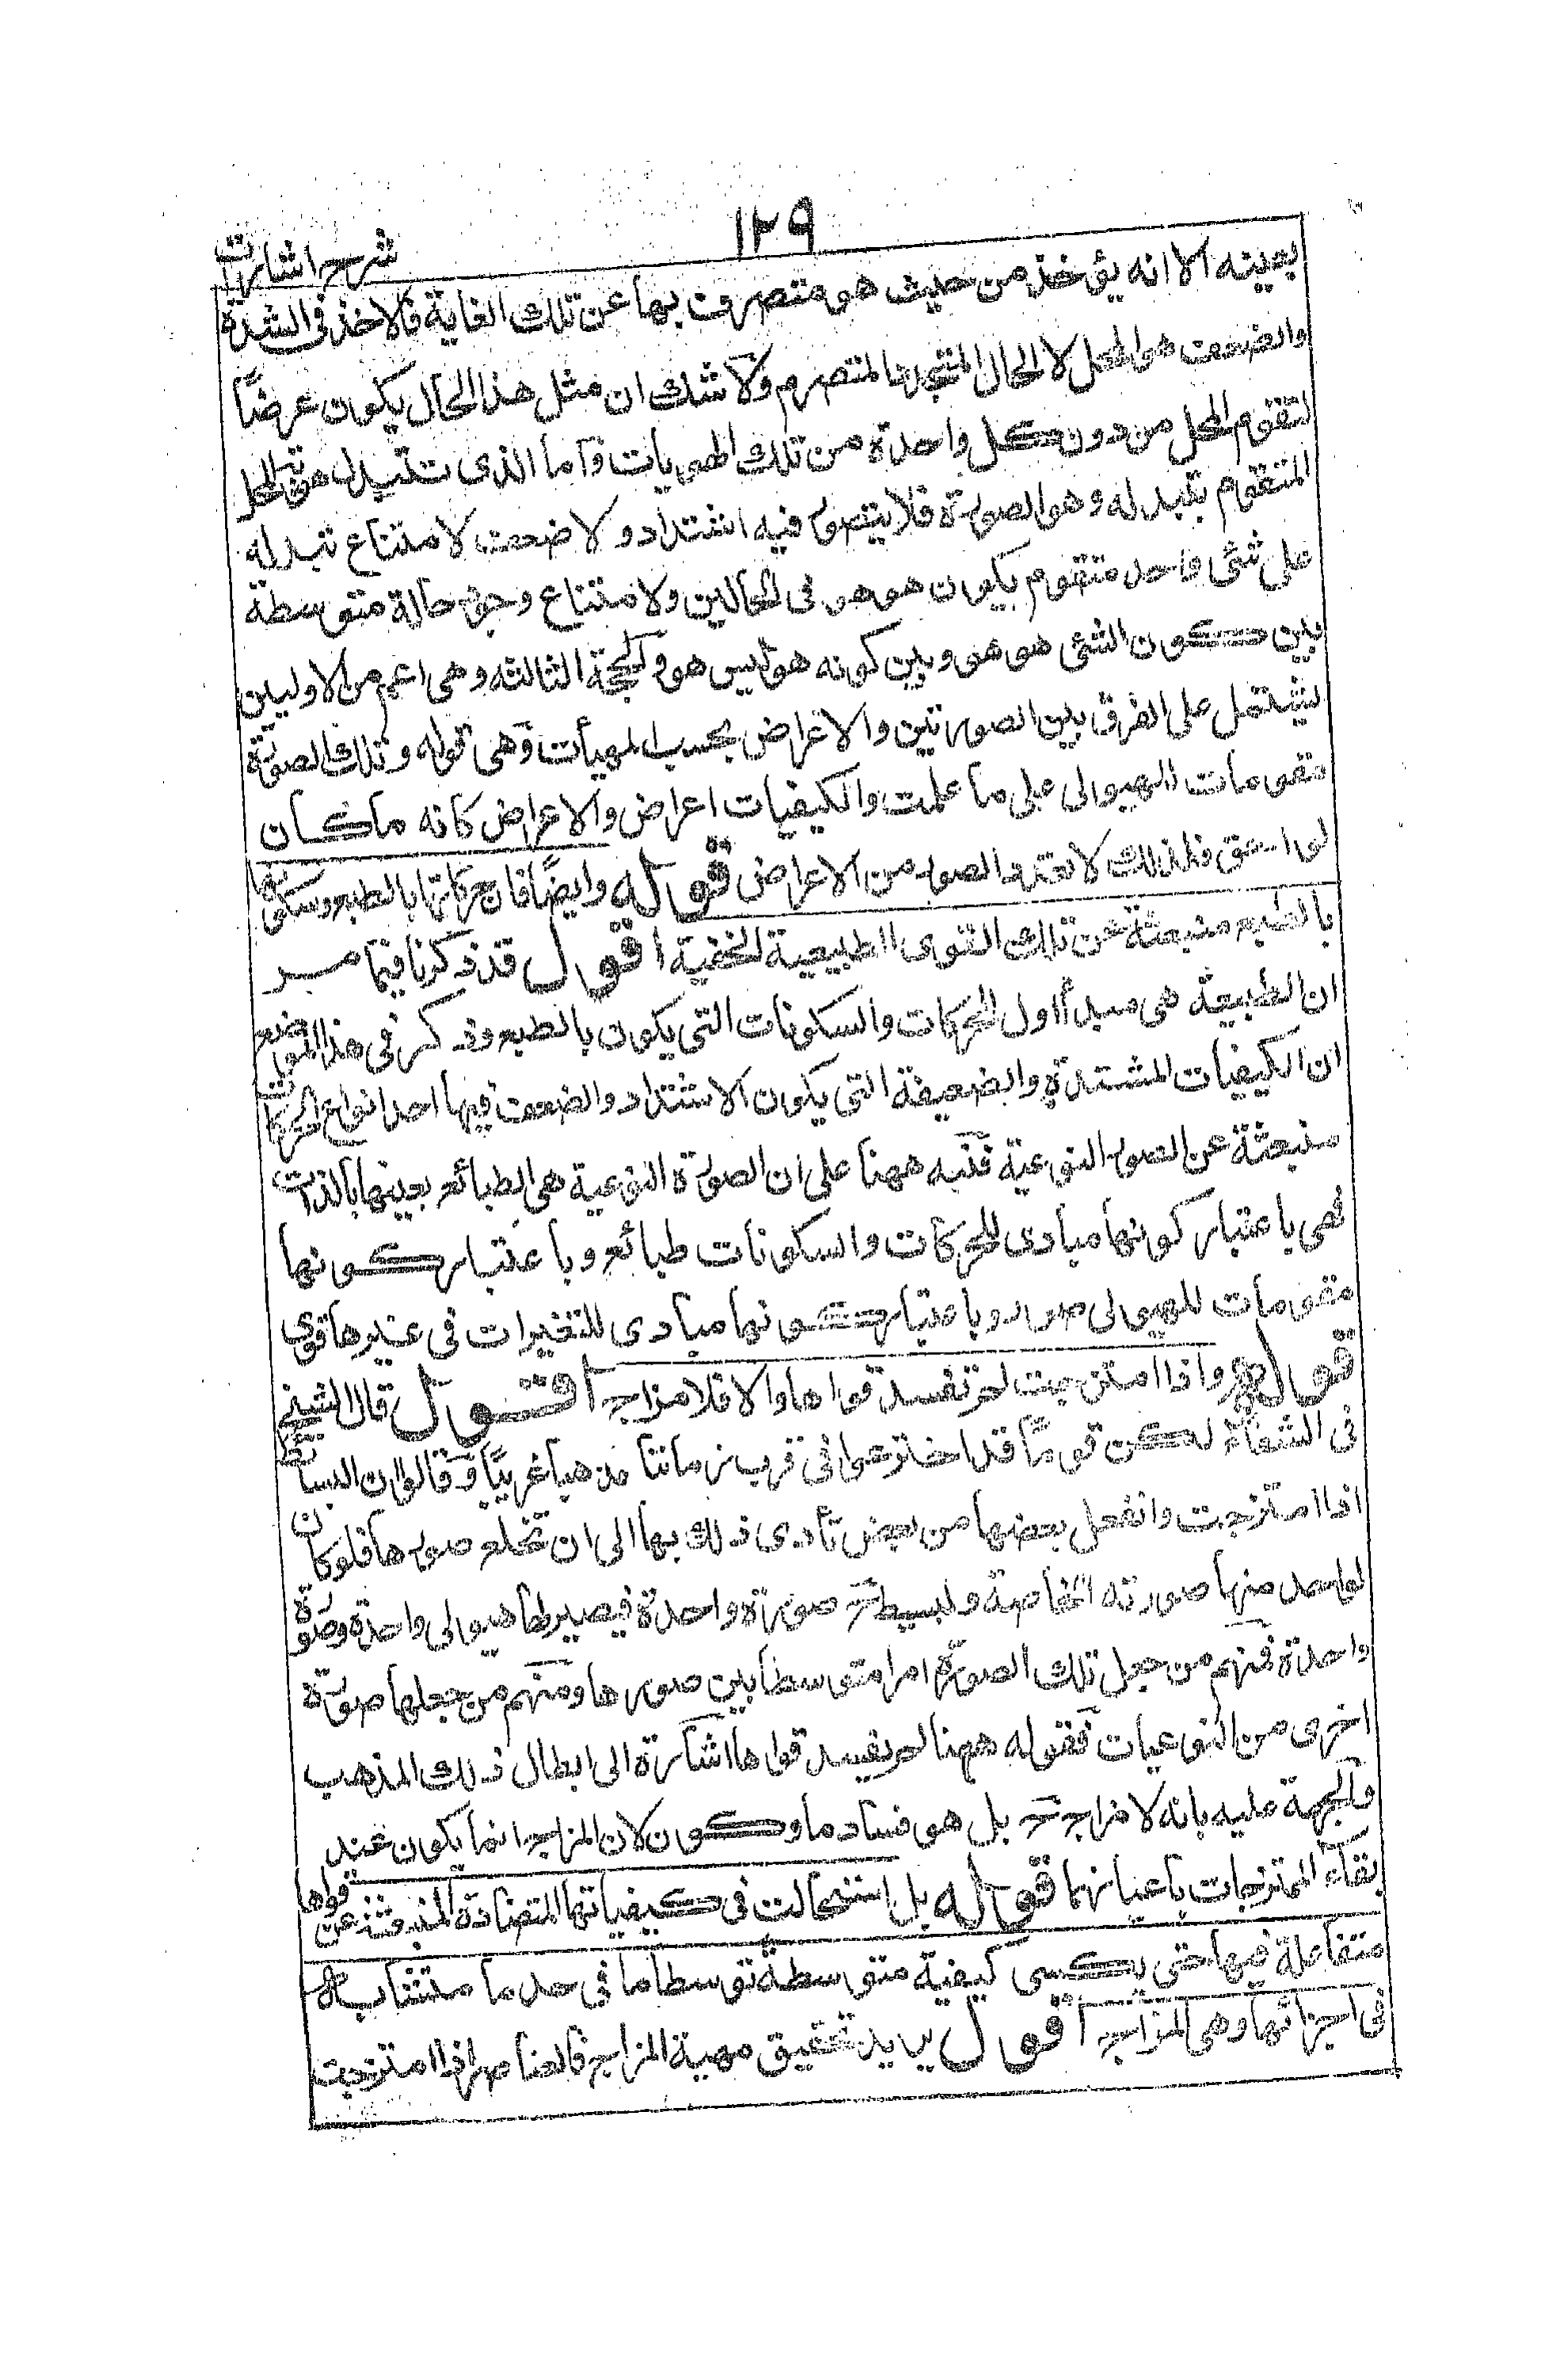 ١٢٩
شرح اشارات
بعينه الا انه يؤخذ من حيث هو متصرف بها عن تلك الغاية فالاخذ فى الشدة
والضعف هو المحل لا الحال المتجدد المتصرم ولا شك ان مثل هذا الحال يكون عرضًا
لتقوم المحل من دون كل واحدة من تلك الهويات واما الذى تتبدل هوية المحل
المتقوم بتبدله وهو الصورة فلا يتصور فيه اشتداد ولا ضعف لامتناع تبدله
على شئ واحد متقوم يكون هو هو فى الحالين ولامتناع وجود حالة متوسطة
بين كون الشئ هو هو وبين كونه هو ليس هو والحجة الثالثة وهى اعم من الاوليين
يشتمل على الفرق بين الصورتين والاعراض بحسب المهيأت وهى قوله وتلك الصورة
مقومات للهيولى على ما علمت والكيفيات اعراض والاعراض كانه ما كان
لواحق فلذلك لا تعد الصور من الاعراض قوله وايضًا فان حركاتها بالطبع وسكوناتها
بالطبع منبعثة عن تلك القوى الطبيعية الخفية اقول قد ذكرنا فيما مر
ان الطبيعة هى مبدأ اول للحركات والسكونات التى يكون بالطبع وذكر فى هذا الموضع
ان الكيفيات المشتدة والضعيفة التى يكون الاشتداد والضعف فيها احد انواع الحركات
منبعثة عن الصور النوعية فنبه ههنا على ان الصورة النوعية هى الطبائع بعينها بالذات
فهى باعتبار كونها مبادى للحركات والسكونات طبائع وباعتبار كونها
مقومات للهيولى صور وباعتبار كونها مبادى للتغيرات فى غيرها قوى
قوله واذا امتزجت لم تفسد قواها والا فلا مزاج اقول قال الشيخ
فى الشفاء لكن قومًا قد اخترعوا فى قرب زماننا مذهبا غريبًا وقالوا ان البسائط
اذا امتزجت وانفعل بعضها من بعض تأدى ذلك بها الى ان تخلع صورها فلو كان
لواحد منها صورته الخاصة ولبست ح صورة واحدة فيصير لها هيولى واحدة وصورة
واحدة فمنهم من جعل تلك الصورة امرا متوسطا بين صورها ومنهم من جعلها صورة
اخرى من النوعيات فقوله ههنا لم يفسد قواها اشارة الى ابطال ذلك المذهب
والحجة عليه بانه لا مزاج ح بل هو فساد ما وكون لان المزاج انما يكون عند
بقاء الممتزجات باعيانها قوله بل استحالت فى كيفياتها المتضادة المنبعثة عن قواها
متفاعلة فيها حتى يكسى كيفية متوسطة توسطا ما فى حد ما متشابه
فى اجزائها وهى المزاج اقول يريد تحقيق مهية المزاج فالعناصر اذا امتزجت